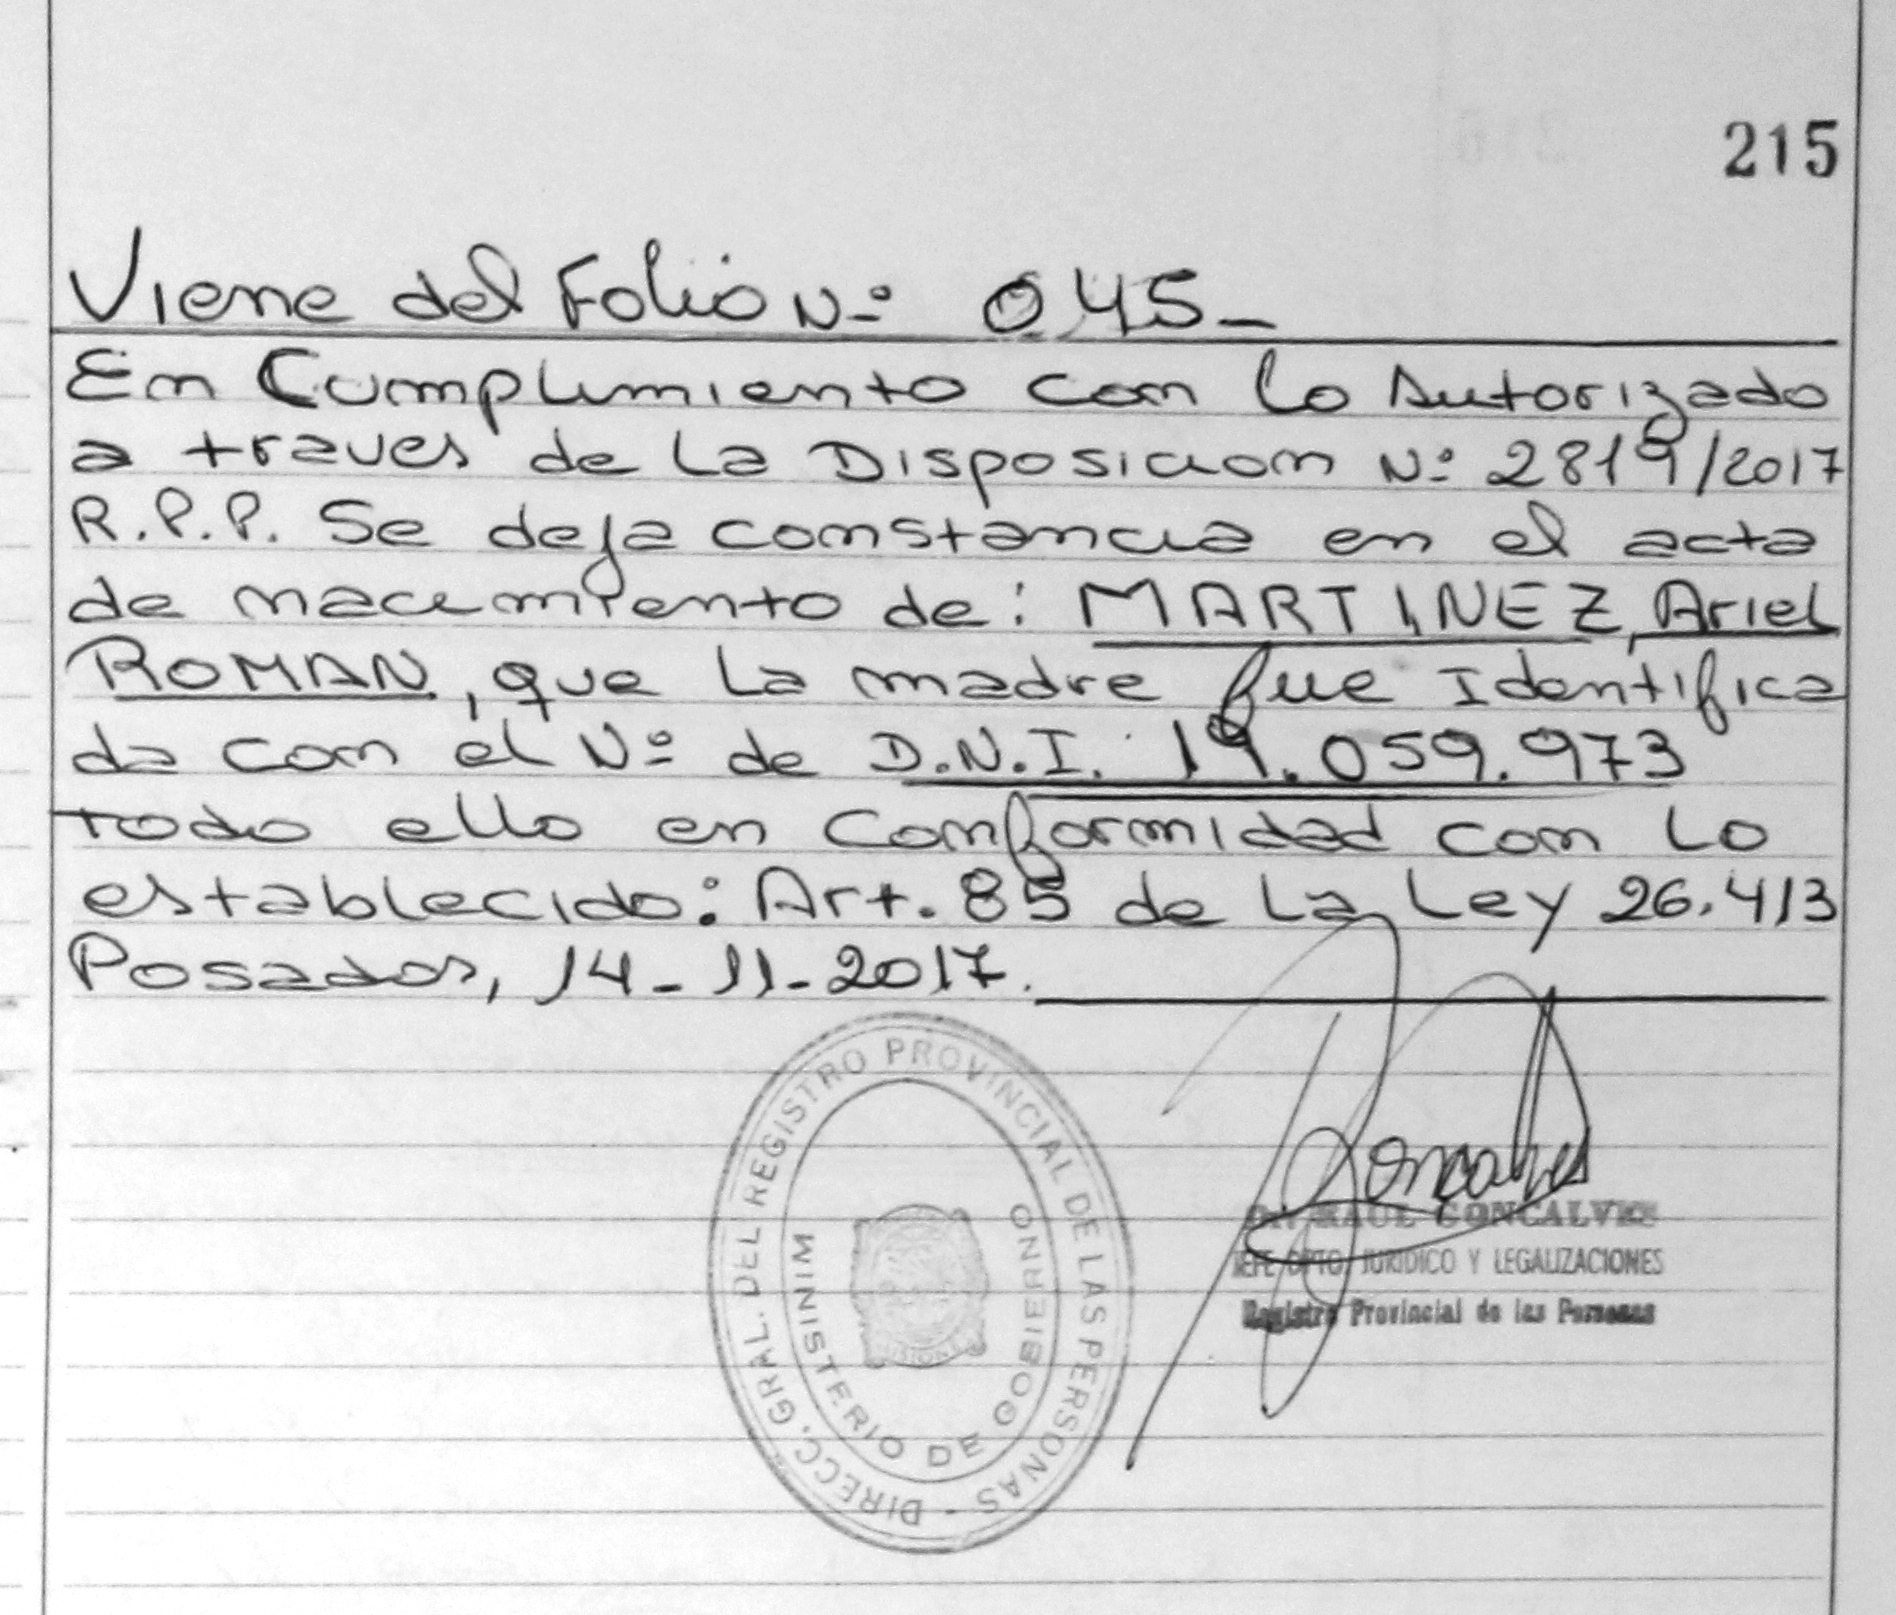 215
Viene del Folio Nº 045_
En Cumplimiento con lo Autorizado
a traves de la Disposicion Nº 2819/2017
R.P.P. Se deja constancia en el acta
de nacimiento de: MARTINEZ, Ariel
ROMAN, que la madre fue Identifica
da con el Nº de D.N.I. 19.059.973
todo ello en Conformidad con lo
establecido: Art. 85 de la Ley 26.413
Posadas, 14-11-2017.
DIRECC. GRAL. DEL REGISTRO PROVINCIAL DE LAS PERSONAS -
MINISTERIO DE GOBIERNO
RAUL GONCALVES
JEFE DPTO. JURIDICO Y LEGALIZACIONES
Registro Provincial de las Personas